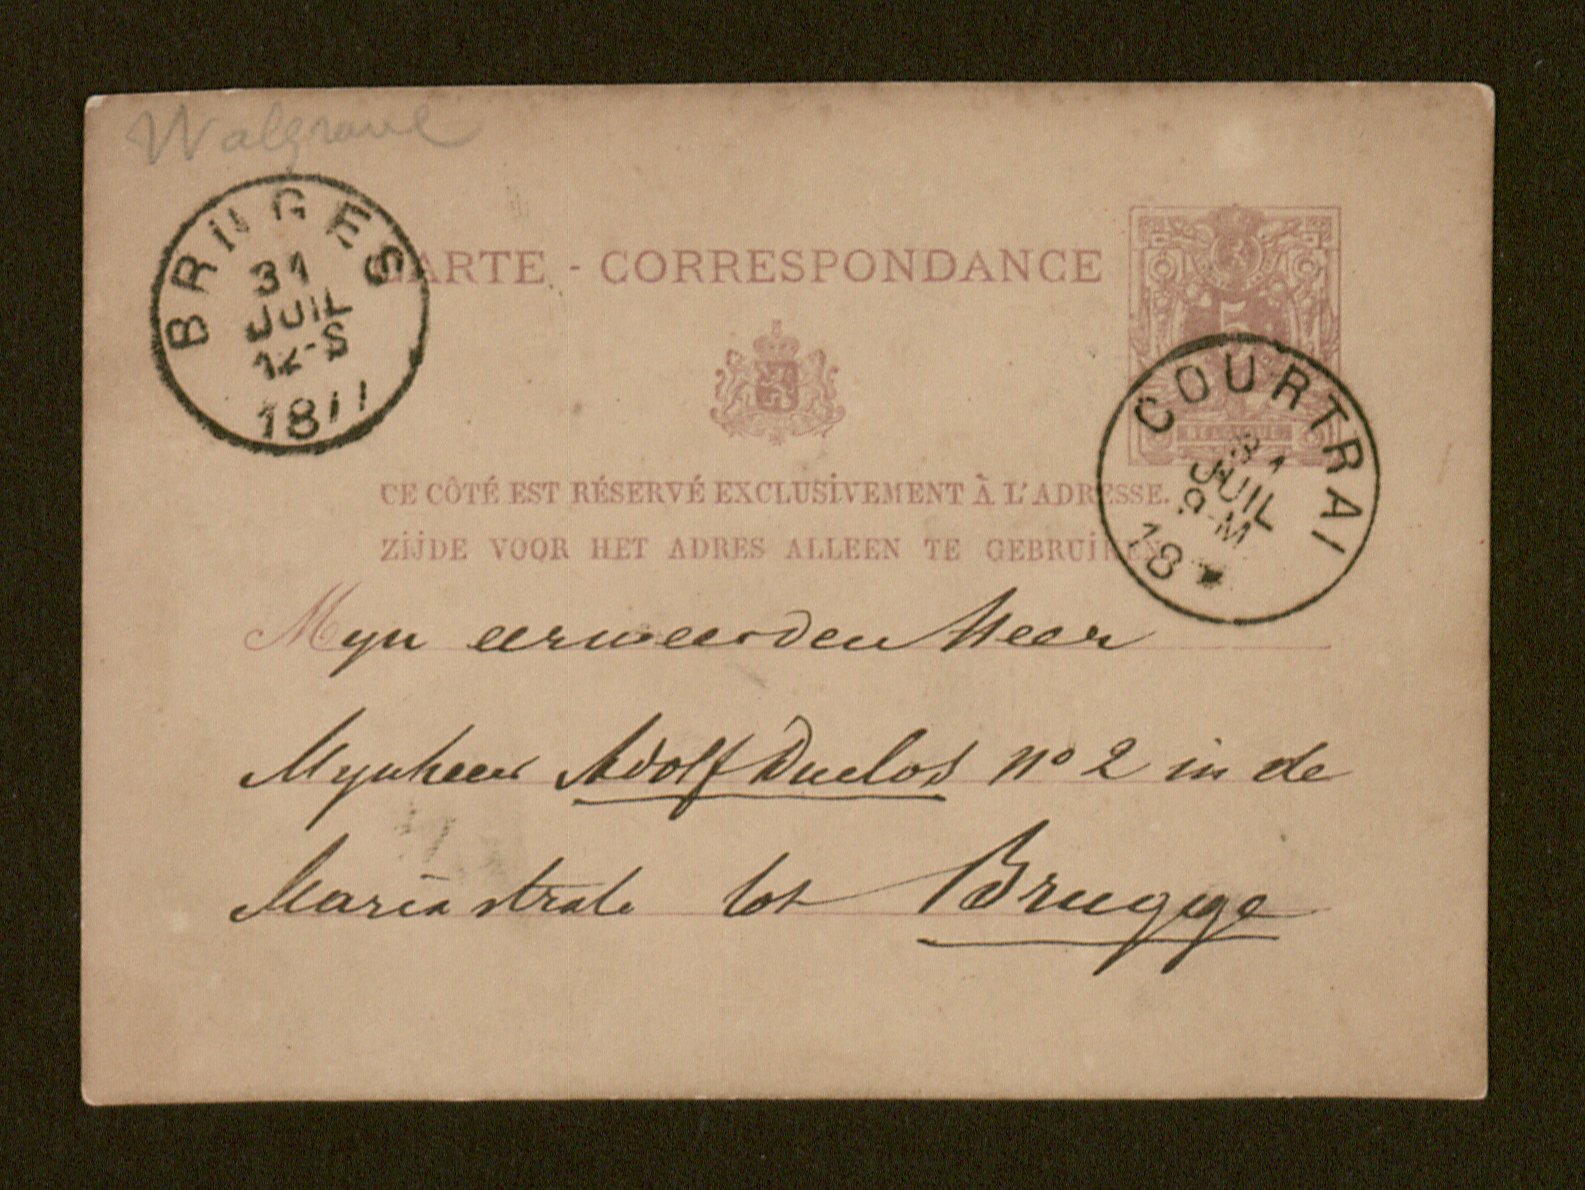 Walgrave
BRUGES
31
JUIL
12-S
18
CARTE - CORRESPONDANCE
5
BELGIQUE
COURTRAI
31
JUIL
9-M
18
CE CÔTÉ EST RÉSERVÉ EXCLUSIVEMENT À L'ADRESSE.
ZIJDE VOOR HET ADRES ALLEEN TE GEBRUIKEN.
Myn eerweerden Heer
Mynheer Adolf Duclos nº 2 in de
Maria strate tot Brugge